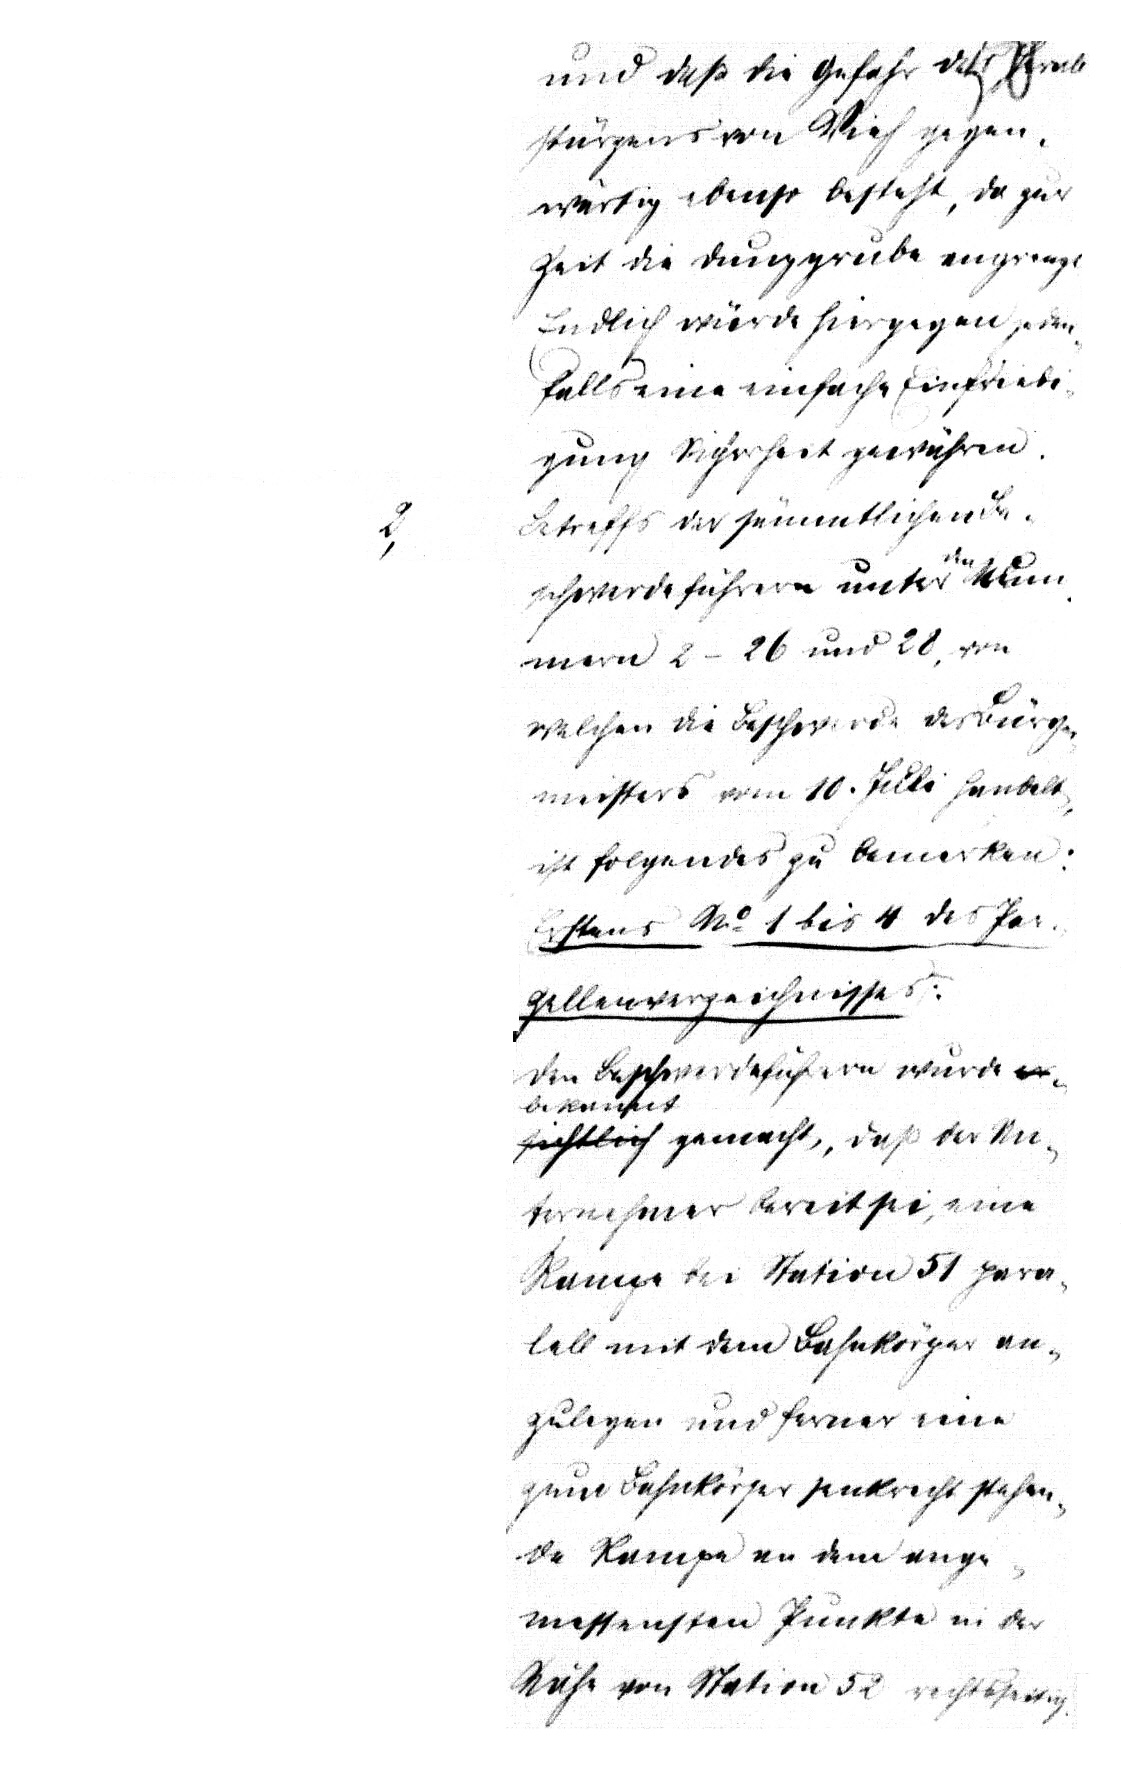 und daß die Gefahr des Herab
stürzens von Vieh gegen-
wärtig ebenso besteht, da zur
Zeit die Dunggrube angrenzt
Endlich würde hiergegen jeden-
falls eine einfache Einfriedi-
gung Sicherheit gewähren.
2, Betreffs der sämmtlichen Be-
schwerdeführern unter den Num
mern 2 - 26 und 28, von
welchen die Beschwerde des Bürger
meisters vom 10. Juli handelt,
ist folgendes zu bemerken:
Erstens No 1 bis 4 des Par-
zellenverzeichnisses:
Den Beschwerdeführern wurde er-
bekannt
sichtlich gemacht, daß der Un-
ternehmer bereit sei, eine
Rampe bei Station 51 para-
lell mit dem Bahnkörper an-
zulegen und ferner eine
zum Bahnkörper senkrecht stehen-
de Rampe an dem ange-
messensten Punkte in der
Nähe von Station 52 rechtsseitig